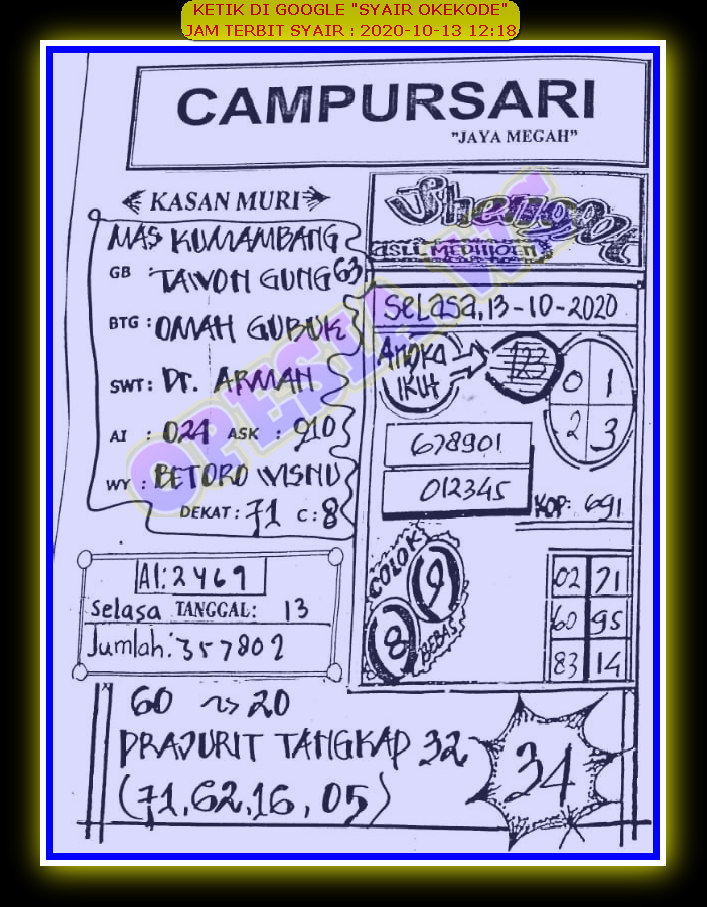 KETIK DI GOOGLE "SYAIR OKEKODE"
JAM TERBIT SYAIR : 2020-10-13 12:18
CAMPURSARI
"JAYA MEGAH"
KASAN MURI
MAS KUMAMBANG
GB : TAWON GUNG 63
BTG : OMAH GUBUK
SWT : Dr. ARMAN
AI : 024 ASK : 910
WY : BETORO WISNU
DEKAT : 71 C : 8
AI : 2469
Selasa TANGGAL : 13
Jumlah : 357802
Shengpot
ASLI
SELASA, 13-10-2020
ANGKA IKUT
123
0 1
2 3
678901
012345
KOP : 691
COLOK
9
8
BEBAS
02 71
60 95
83 14
60 ~> 20
PRAJURIT TANGKAP 32
(71, 62, 16, 05)
34
OPESIA W